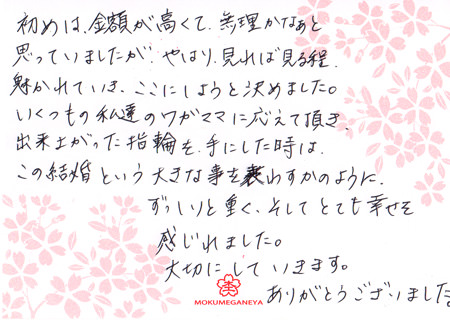 初めは、金額が高くて、無理かなぁと
思っていましたが、やはり、見れば見る程、
魅かれていき、ここにしようと決めました。
いくつもの私達のワガママに応えて頂き、
出来上がった指輪を、手にした時は、
この結婚という大きな事を表わすかのように、
ずっしりと重く、そしてとても幸せを
感じれました。
大切にしていきます。
ありがとうございました
MOKUMEGANEYA